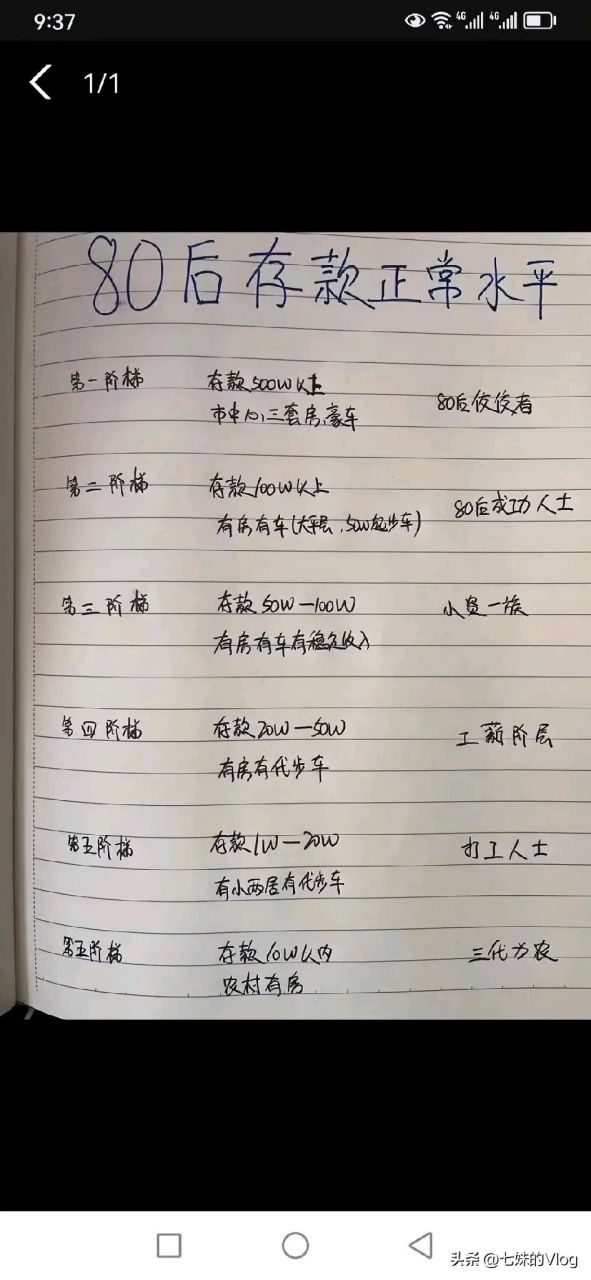 9:37
4G 4G
1/1
80后存款正常水平
第一阶梯 存款500W以上 80后佼佼者
市中心三套房,豪车
第二阶梯 存款100W以上 80后成功人士
有房有车(大平层,50W起步车)
第三阶梯 存款50W—100W 小资一族
有房有车有稳定收入
第四阶梯 存款20W—50W 工薪阶层
有房有代步车
第五阶梯 存款1W—20W 打工人士
有小两居有代步车
第五阶梯 存款10W以内 三代为农
农村有房
头条 @七妹的Vlog